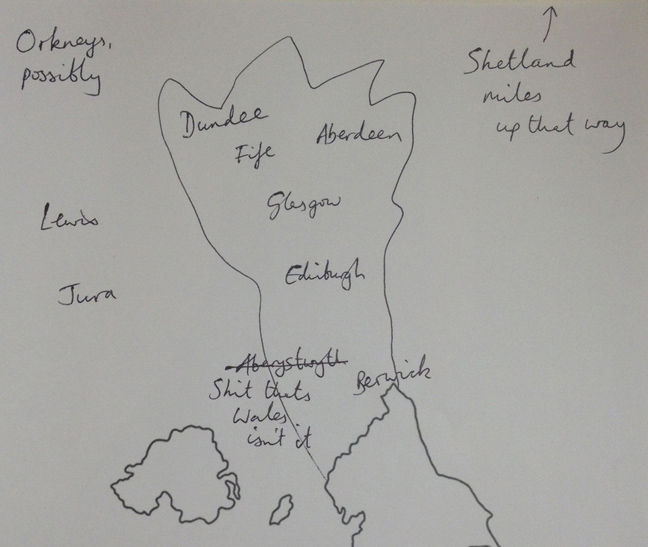 Orkneys,
possibly
Shetland
miles
up that way
Dundee
Aberdeen
Fife
Glasgow
Lewis
Edinburgh
Jura
Aberystwyth
Shit thats
Wales
isn't it
Berwick